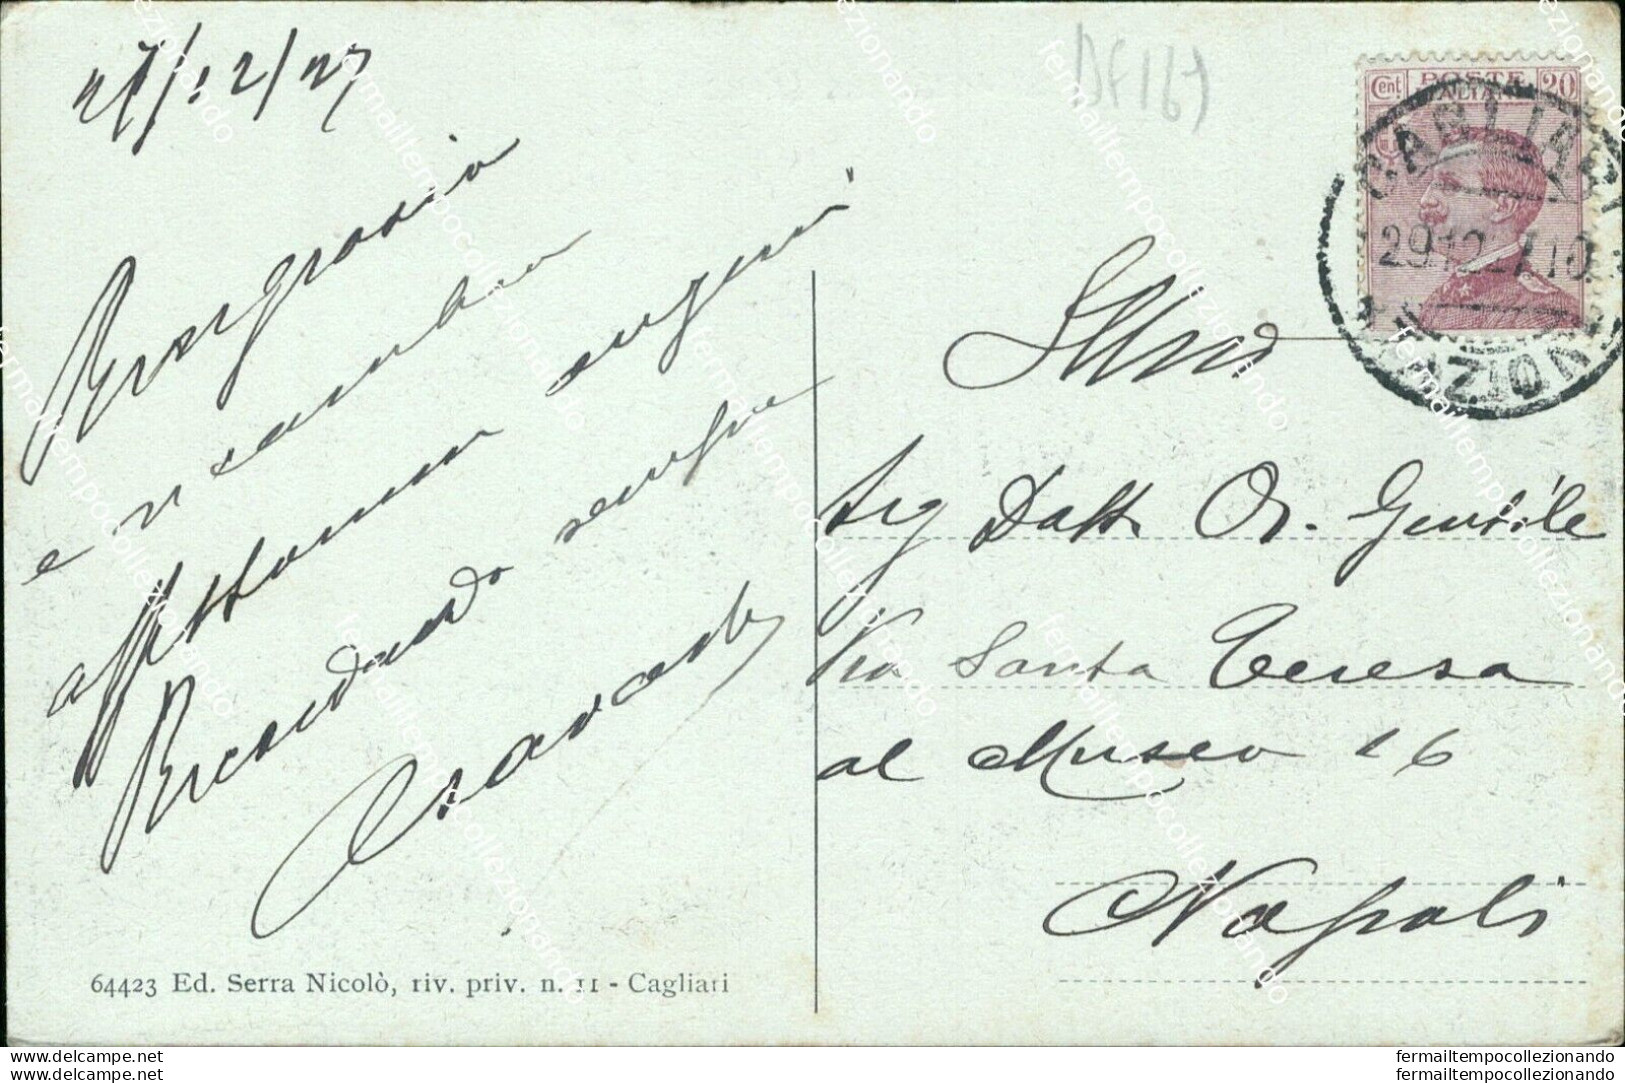 27/12/27
Ringrazio
e ricambio
affettuosi auguri
Ricordando sempre
DF167
Cent POSTE 20
ITALIANE
CAGLIARI
29 12 27 10
Illmo
Sig Dott Or. Gentile
Via Santa Teresa
al Museo 16
Napoli
64423 Ed. Serra Nicolò, riv. priv. n. 11 - Cagliari
www.delcampe.net
www.delcampe.net
fermailtempocollezionando
fermailtempocollezionando